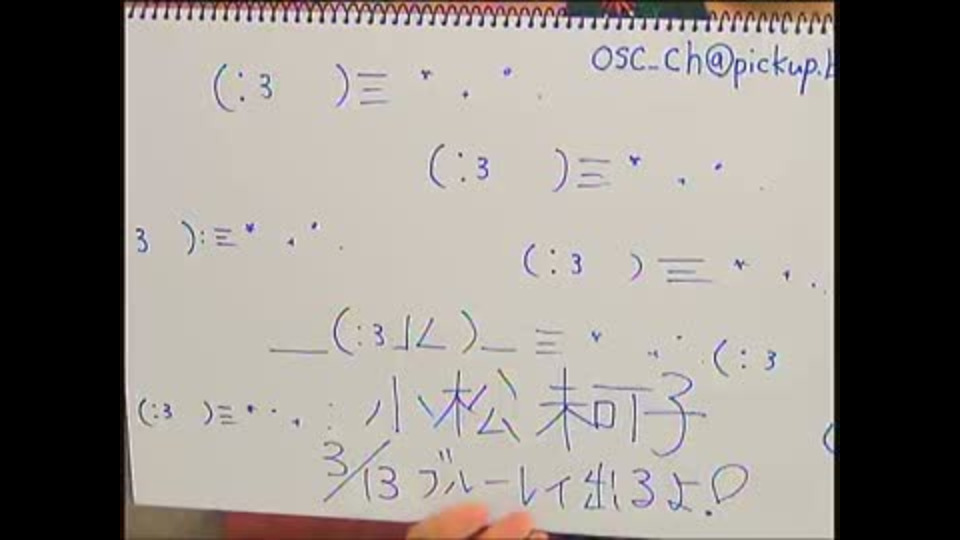 OSC_Ch@pickup.
(:3 )三 * . ・ .
(:3 )三 * . ・ .
3 ):三 * . ・ .
(:3 )三 * . .
__(:3」∠)_ 三 * . ・ . (:3
(:3 )三 * ・ . :
小松未可子
3/13 ブルーレイ出るよ!